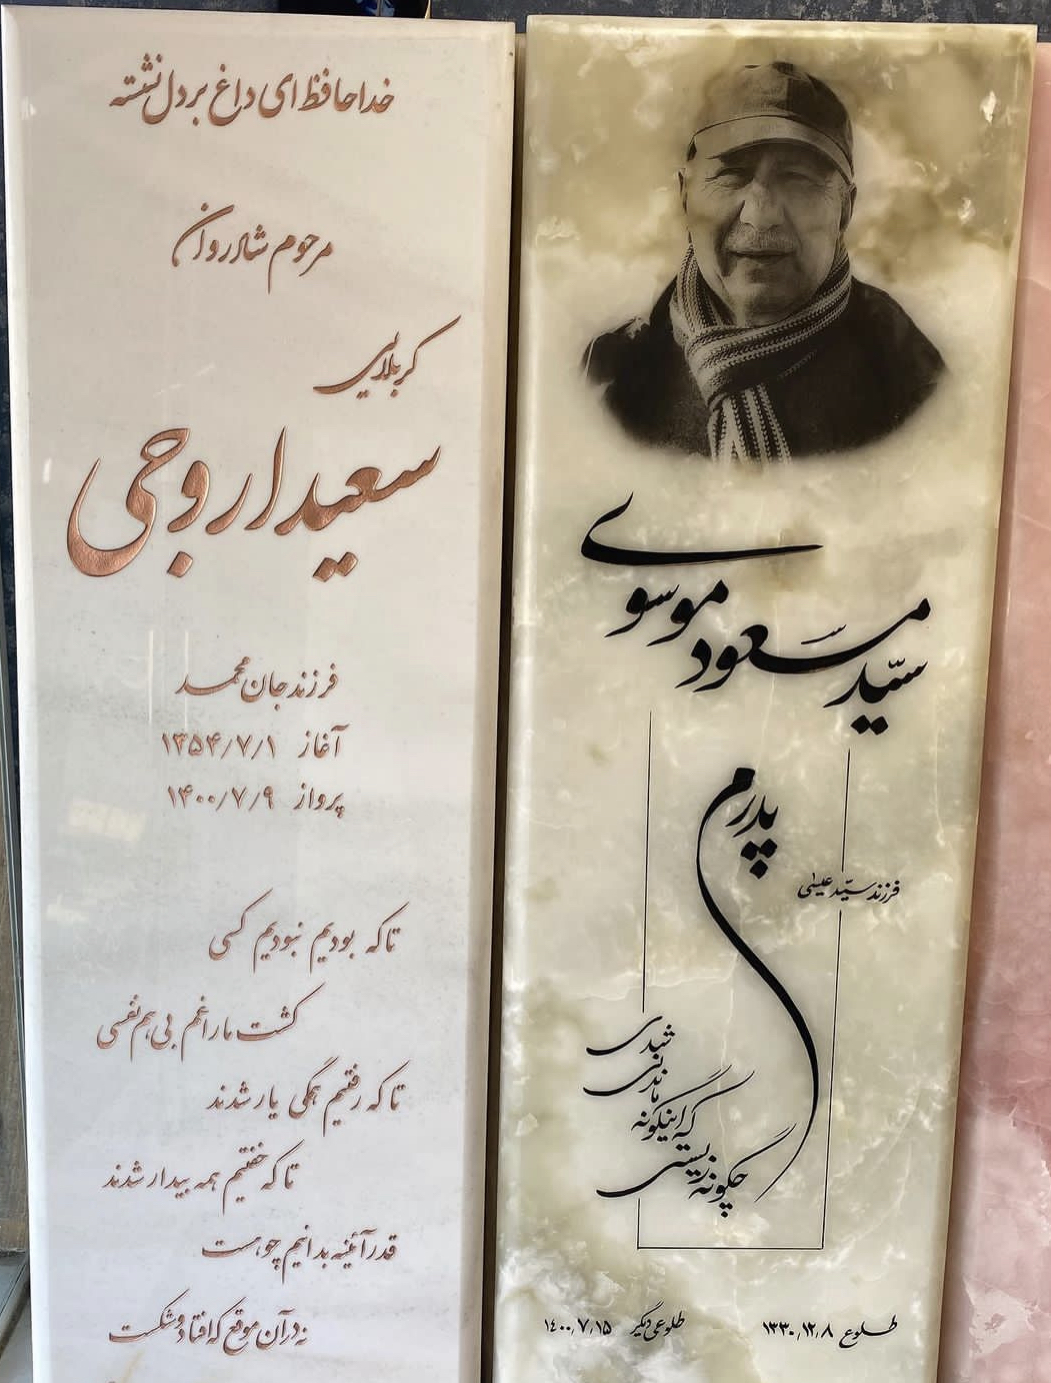 خداحافظ ای داغ بر دل نشسته
مرحوم شادروان
کربلایی
سعید اروجی
فرزند جان محمد
آغاز ۱۳۵۴/۷/۱
پرواز ۱۴۰۰/۷/۹
تا که بودیم نبودیم کسی
کشت ما را غم بی هم نفسی
تا که رفتیم همگی یار شدند
تا که خفتیم همه بیدار شدند
قدر آئینه بدانیم چو هست
نه در آن موقع که افتاد و شکست
سیّد مسعود موسوی
فرزند سیّد عیسی
پدرم
چگونه زیستی
که اینگونه
ماندنی
شدی
طلوع ۱۳۳۰/۱۲/۸
طلوعی دیگر ۱۴۰۰/۷/۱۵